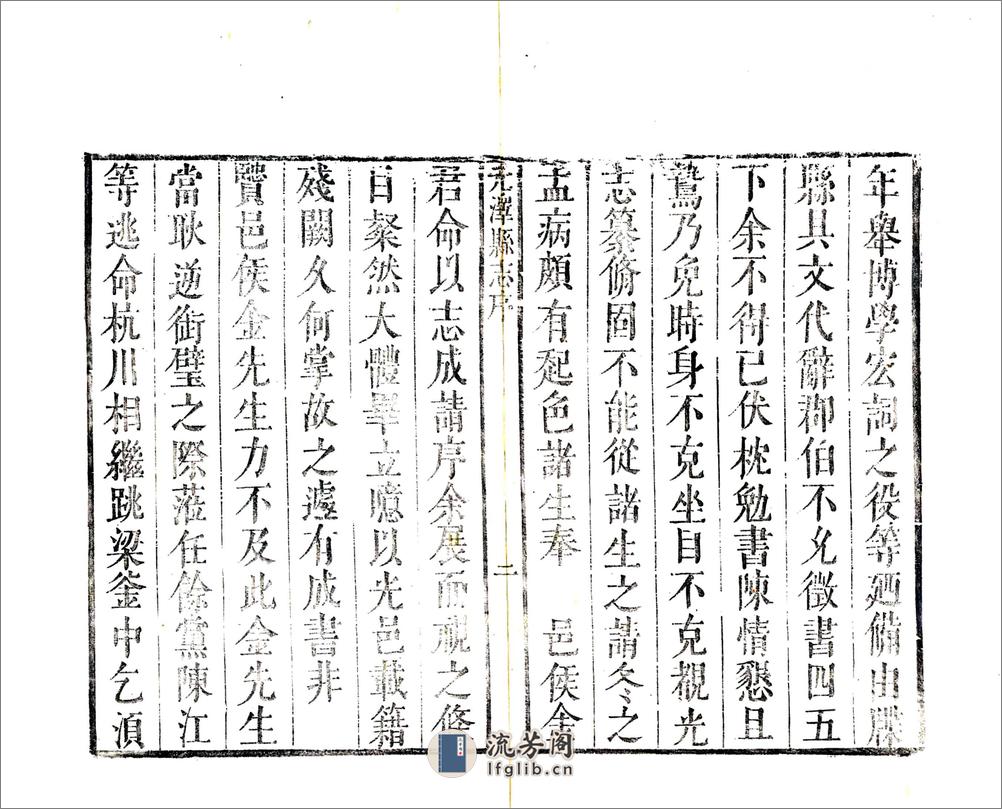 年舉博學宏詞之役等廼備由牒
縣具文代辭郡伯不允徵書四五
下余不得已伏枕勉書陳情懇且
鷙乃免時身不克坐目不克視光
志纂脩固不能從諸生之請冬之
孟病頗有起色諸生奉　邑侯金
光澤縣志序　二
君命以志成請序余展而視之條
目粲然大體畢立噫以光邑載籍
殘闕久何掌故之遽有成書非
賢邑侯金先生力不及此金先生
當耿逆銜璧之際蒞任餘黨陳江
等逃命杭川相繼跳梁釜中乞湏
流芳阁
lfglib.cn